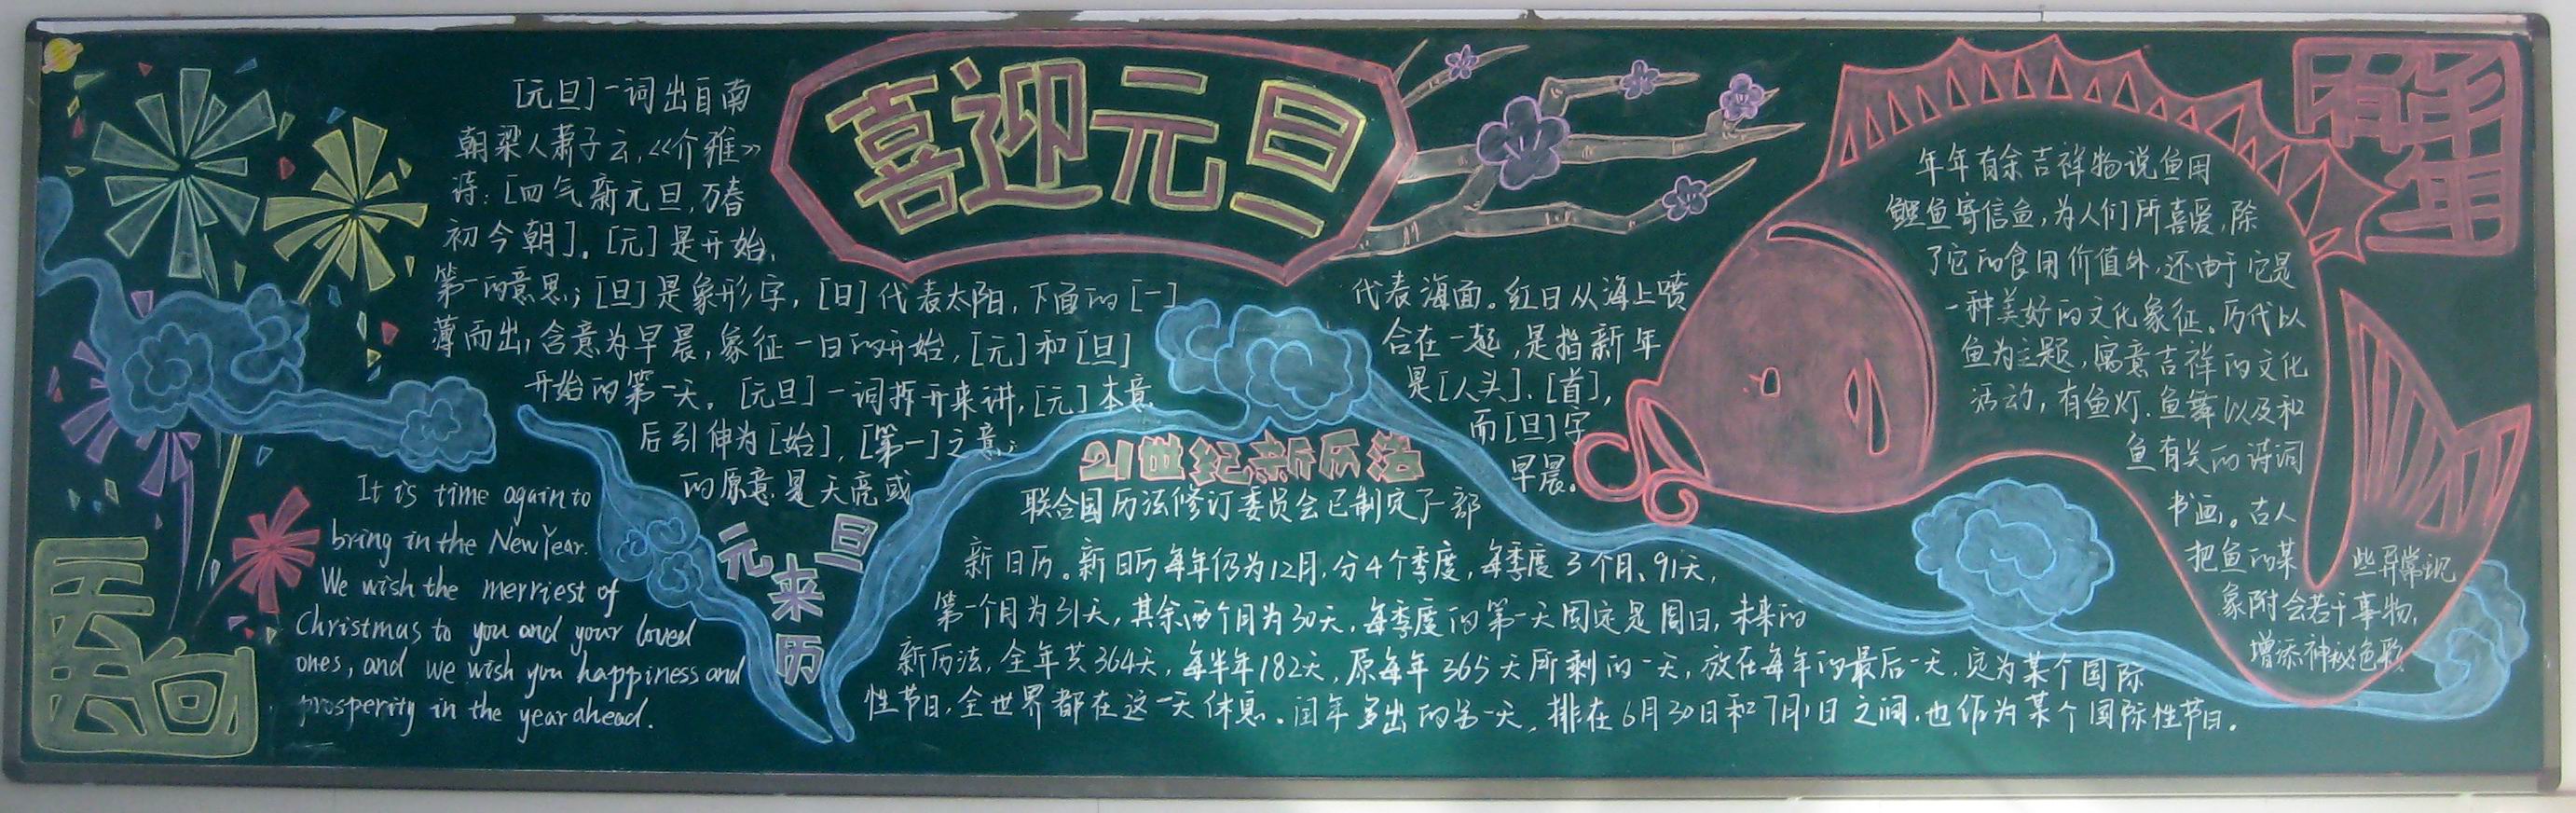 喜迎元旦
[元旦]一词出自南
朝梁人萧子云,《介雅》
诗:[四气新元旦,万春
初今朝]。[元]是开始,
第一的意思;[旦]是象形字,[日]代表太阳,下面的[一]
代表海面。红日从海上喷
薄而出,含意为早晨,象征一日的开始,[元]和[旦]
合在一起,是指新年
开始的第一天。[元旦]一词拆开来讲,[元]本意
是[人头]、[首],
后引伸为[始],[第一]之意;
而[旦]字
的原意是天亮或
早晨。
元旦来历
It is time again to
bring in the New Year.
We wish the merriest of
Christmas to you and your loved
ones, and we wish you happiness and
prosperity in the year ahead.
21世纪新历法
联合国历法修订委员会已制定了一部
新日历。新日历每年仍为12月,分4个季度,每季度3个月、91天,
第一个月为31天,其余两个月为30天,每季度的第一天固定是周日,未来的
新历法,全年共364天,每半年182天,原每年365天所剩的一天,放在每年的最后一天,定为某个国际
性节日,全世界都在这一天休息。闰年多出的另一天,排在6月30日和7月1日之间,也作为某个国际性节日。
年年有余吉祥物说鱼用
鲤鱼寄信鱼,为人们所喜爱,除
了它的食用价值外,还由于它是
一种美好的文化象征。历代以
鱼为主题,寓意吉祥的文化
活动,有鱼灯、鱼舞以及和
鱼有关的诗词
书画。古人
把鱼的某些异常现
象附会若干事物,
增添神秘色彩
年年有